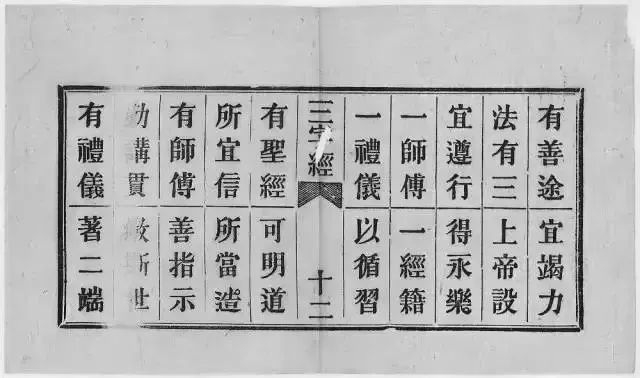 有善途 宜竭力
法有三 上帝設
宜遵行 得永樂
一師傅 一經籍
一禮儀 以循習
三字經 十二
有聖經 可明道
所宜信 所當造
有師傅 善指示
講貫 斯世
有禮儀 著二端